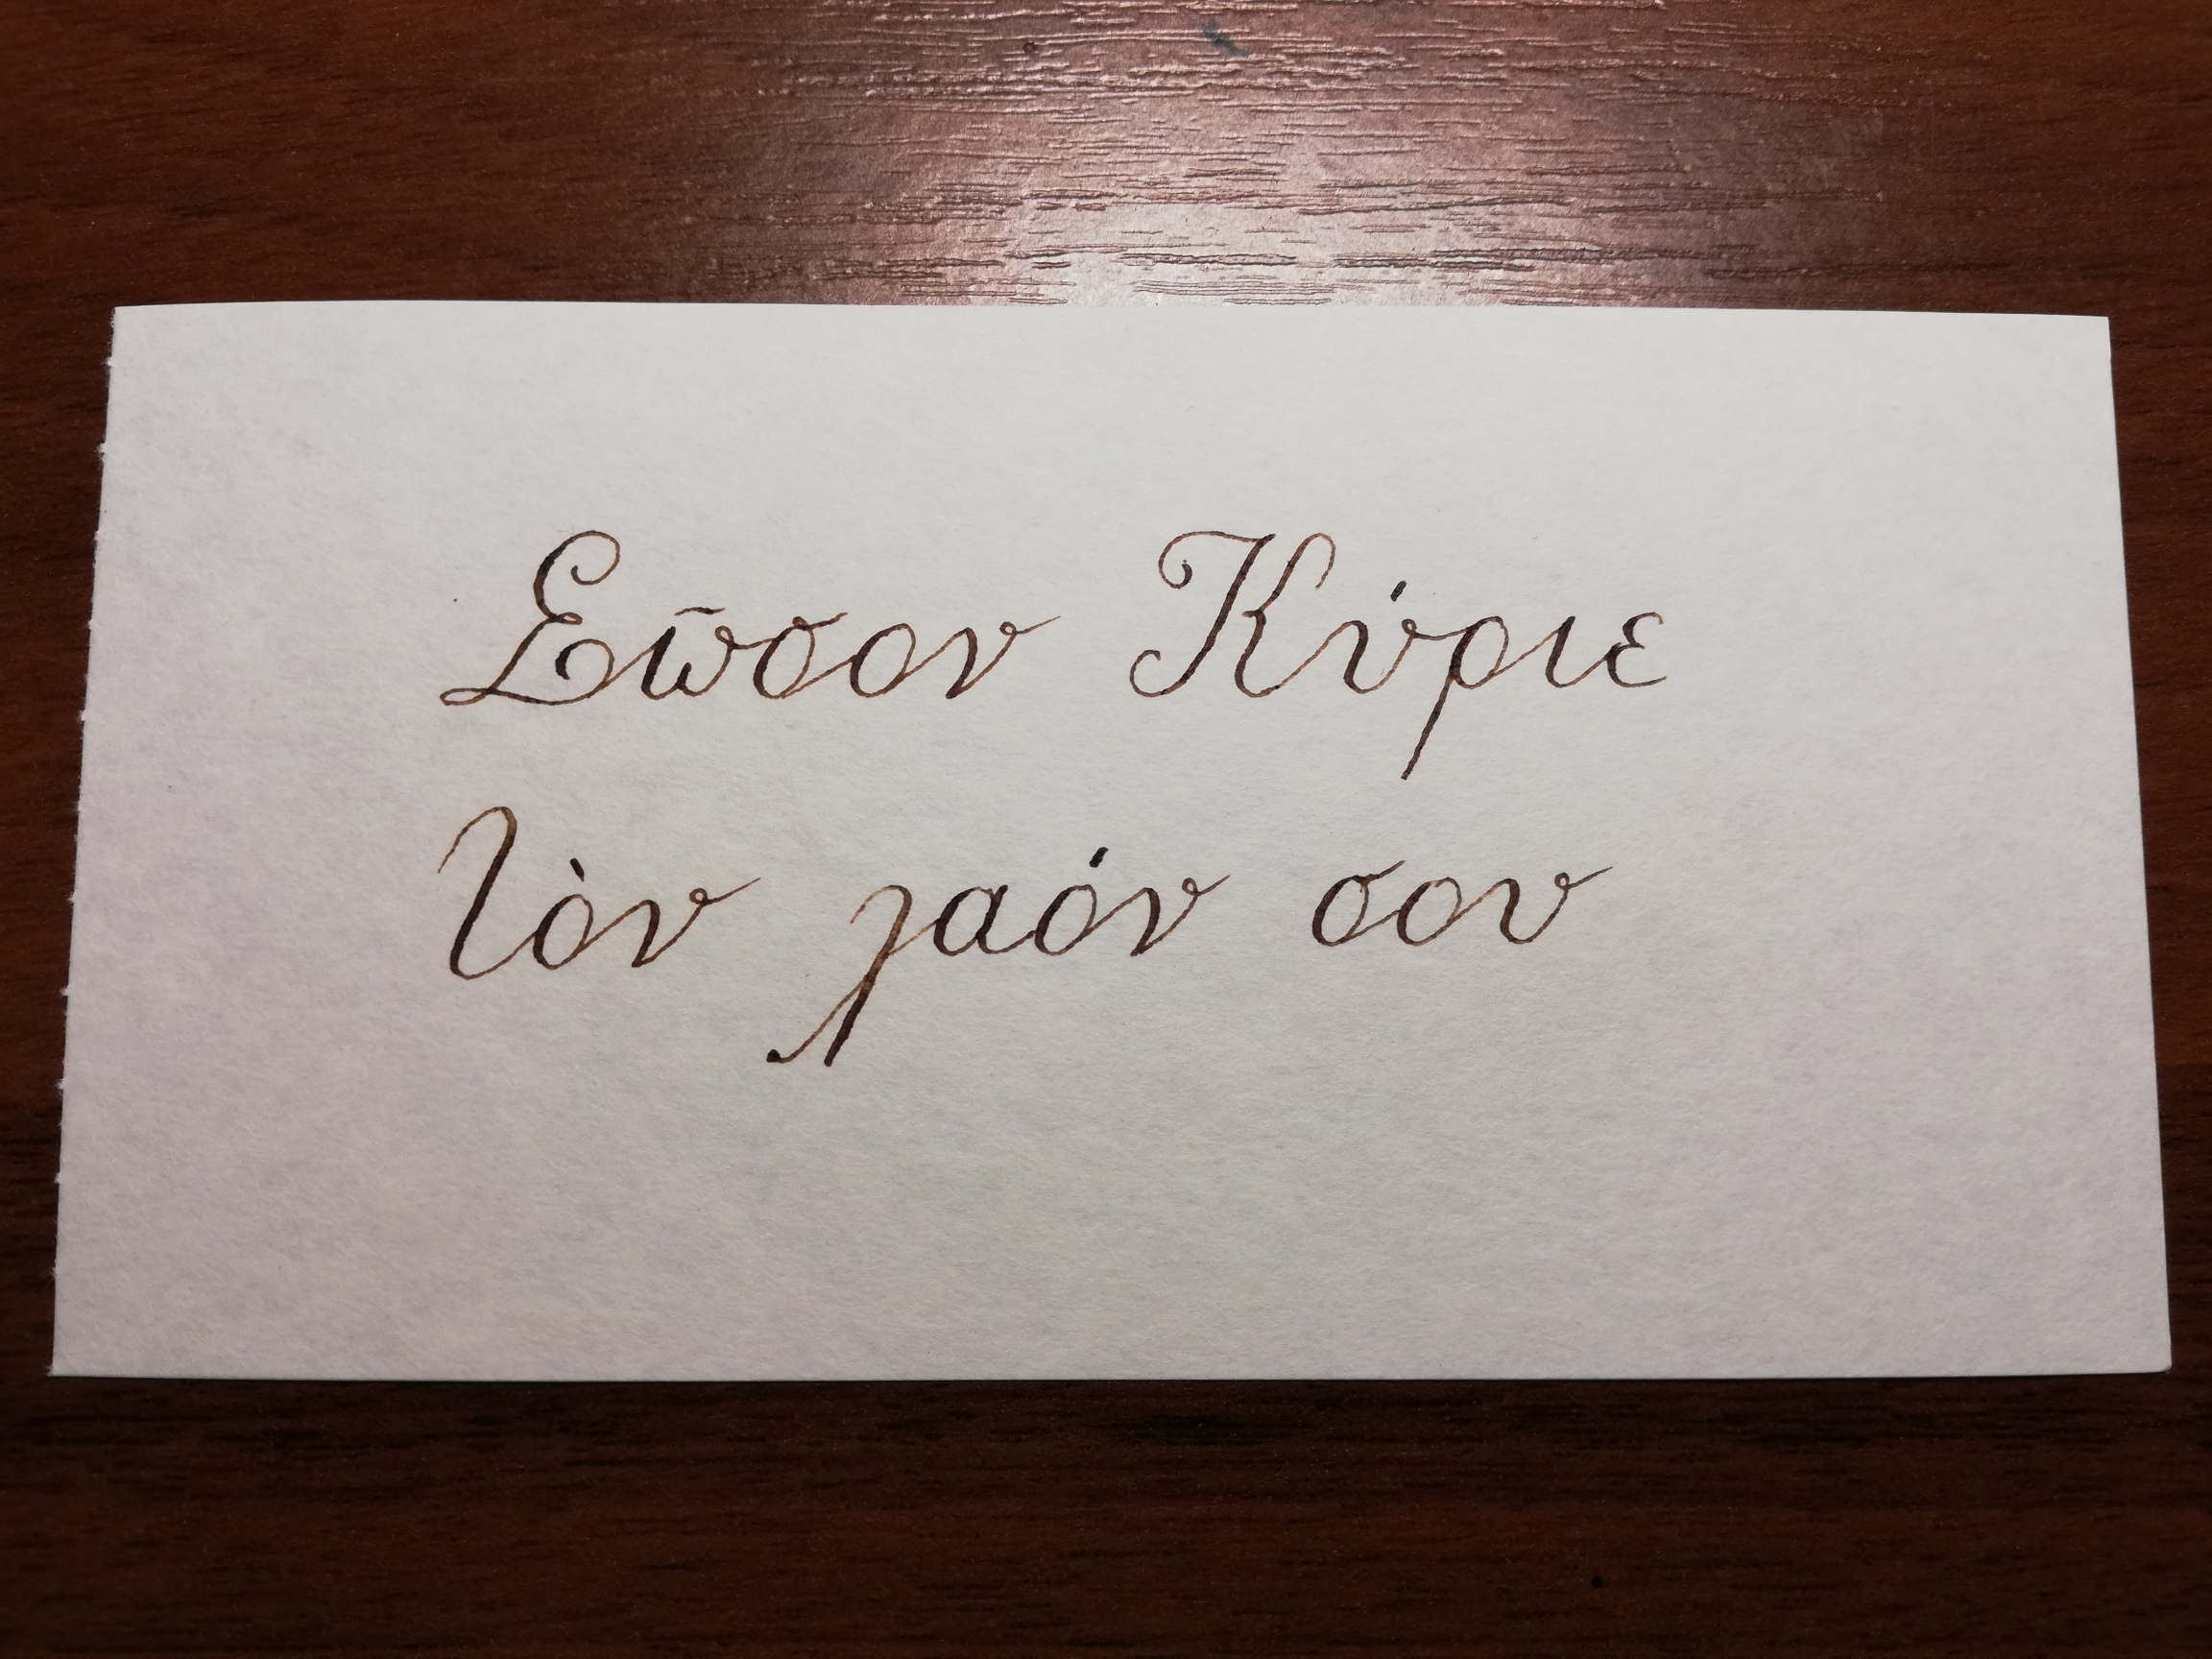 Σῶσον Κύριε
τὸν λαόν σου